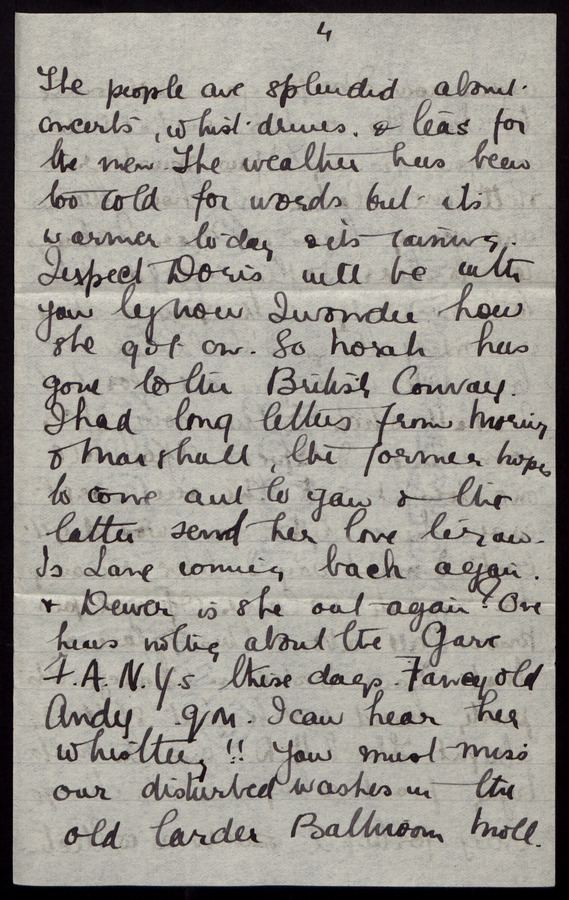 4
The people are splendid about
concerts, whist-drives, & teas for
the men. The weather has been
too cold for words but its
warmer today & its raining.
I expect Doris will be with
you by now I wonder how
she got on. So Norah has
gone to the British Convoy.
I had long letters from
& Marshall, the former hopes
to come out to you & the
latter send her love to you.
Is Lane coming back again.
& Dewar is she out again? One
hears nothing about the Gare
F.A.N.Ys these days. Fancy old
Andy QM. I can hear her
whistling!! You must miss
our disturbed washes in the
old larder Ballroom Moll.